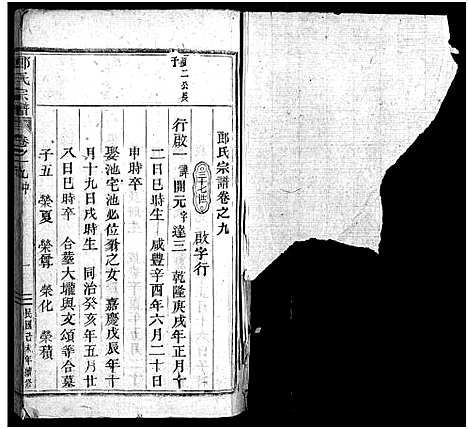 郎氏宗譜卷之九
三十七世 啟字行
二公長
子
行啟一 諱開元字達三 乾隆庚戌年正月十
二日巳時生 咸豐辛酉年六月二十日
申時卒
娶池宅池必位翁之女 嘉慶戊辰年十
月十九日戌時生 同治癸亥年五月廿
八日巳時卒 合墓大壠與文頌爺合墓
子五 榮夏 榮尊 榮化 榮積
郎氏宗譜 卷之九
民國己未年續修